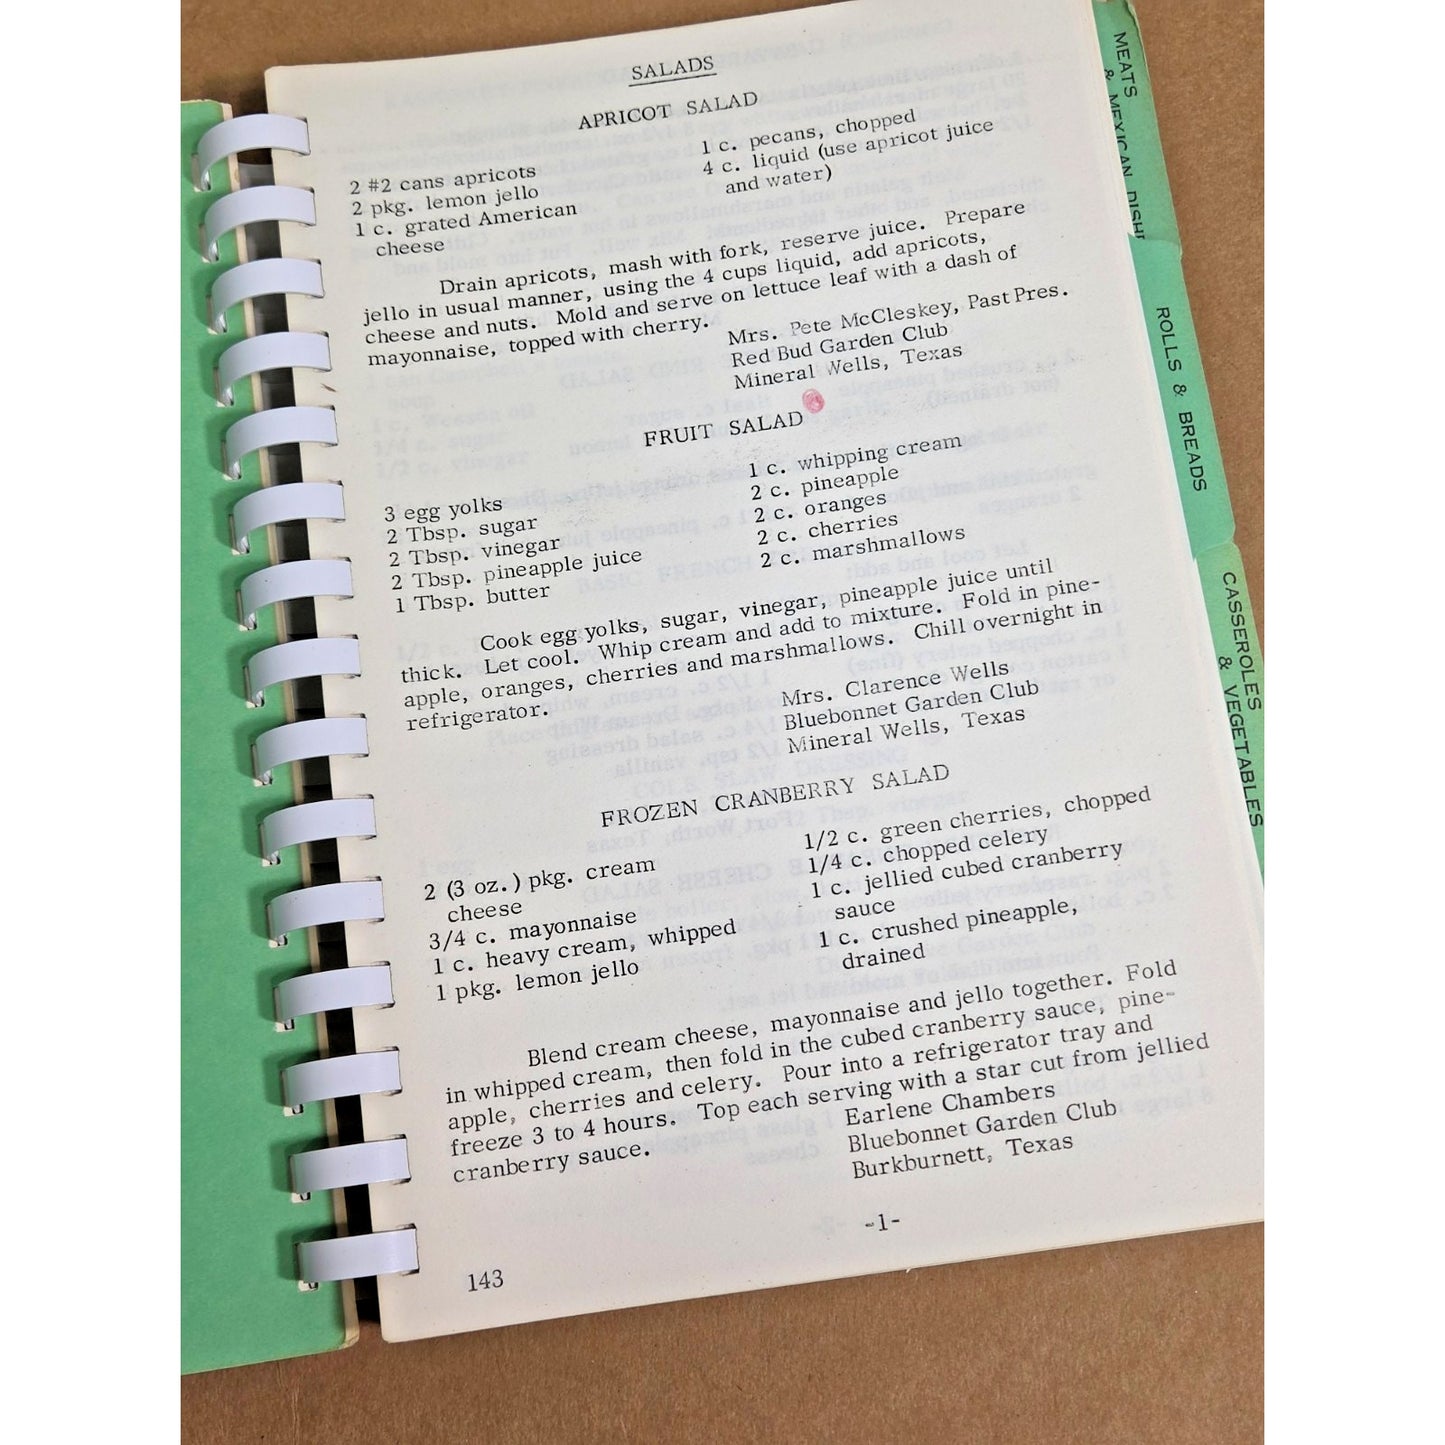 SALADS
APRICOT SALAD
2 #2 cans apricots
2 pkg. lemon jello
1 c. grated American
cheese
1 c. pecans, chopped
4 c. liquid (use apricot juice
and water)
Drain apricots, mash with fork, reserve juice. Prepare
jello in usual manner, using the 4 cups liquid, add apricots,
cheese and nuts. Mold and serve on lettuce leaf with a dash of
mayonnaise, topped with cherry.
Mrs. Pete McCleskey, Past Pres.
Red Bud Garden Club
Mineral Wells, Texas
FRUIT SALAD
3 egg yolks
2 Tbsp. sugar
2 Tbsp. vinegar
2 Tbsp. pineapple juice
1 Tbsp. butter
1 c. whipping cream
2 c. pineapple
2 c. oranges
2 c. cherries
2 c. marshmallows
Cook egg yolks, sugar, vinegar, pineapple juice until
thick. Let cool. Whip cream and add to mixture. Fold in pine-
apple, oranges, cherries and marshmallows. Chill overnight in
refrigerator.
Mrs. Clarence Wells
Bluebonnet Garden Club
Mineral Wells, Texas
FROZEN CRANBERRY SALAD
2 (3 oz.) pkg. cream
cheese
3/4 c. mayonnaise
1 c. heavy cream, whipped
1 pkg. lemon jello
1/2 c. green cherries, chopped
1/4 c. chopped celery
1 c. jellied cubed cranberry
sauce
1 c. crushed pineapple,
drained
Blend cream cheese, mayonnaise and jello together. Fold
in whipped cream, then fold in the cubed cranberry sauce, pine-
apple, cherries and celery. Pour into a refrigerator tray and
freeze 3 to 4 hours. Top each serving with a star cut from jellied
cranberry sauce.
Earlene Chambers
Bluebonnet Garden Club
Burkburnett, Texas
-1-
143
MEATS
& MEXICAN DISH
ROLLS & BREADS
CASSEROLES
& VEGETABLES